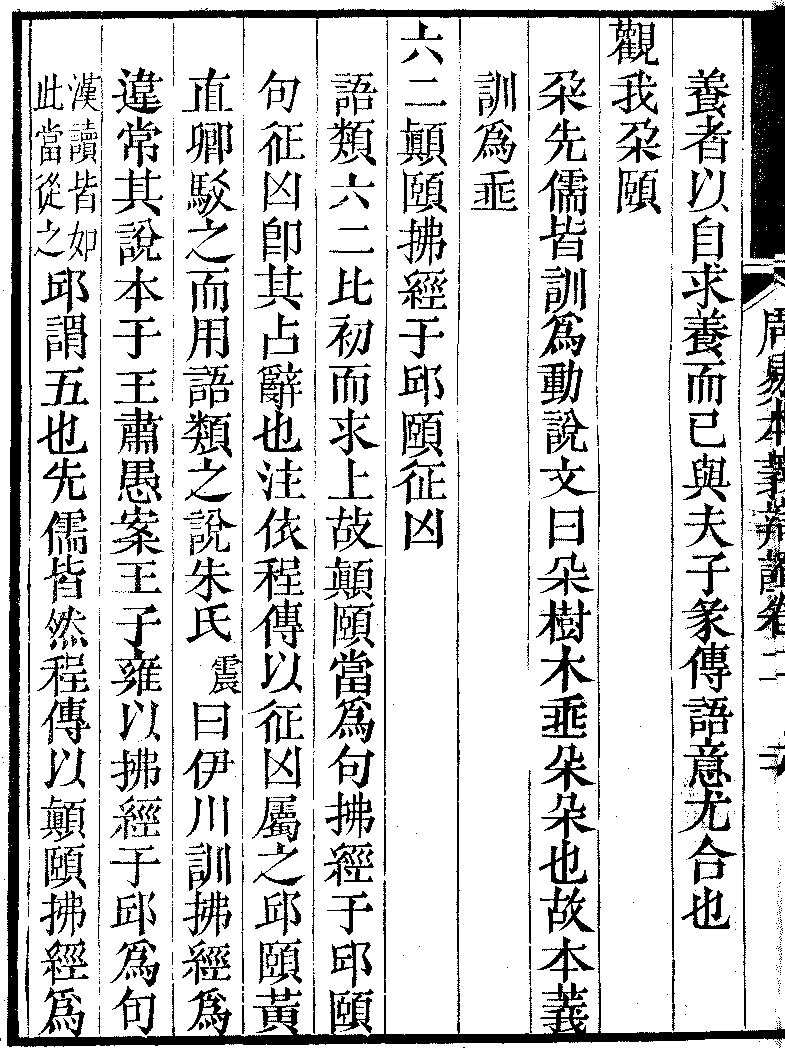 養者以自求養而已與夫子彖傳語意尤合也
觀我朶頤
朶先儒皆訓爲動說文曰朵樹木垂朵朵也故本義
訓爲垂
六二顚頤拂經于邱頤征凶
語類六二比初而求上故顚頤當爲句拂經于邱頤
句征凶卽其占辭也注依程傳以征凶屬之邱頤黃
直卿駁之而用語類之說朱氏震曰伊川訓拂經爲
違常其說本于王肅愚案王子雍以拂經于邱爲句
漢讀皆如
此當從之
邱謂五也先儒皆然程傳以顚頤拂經爲
周易本義辨證卷二